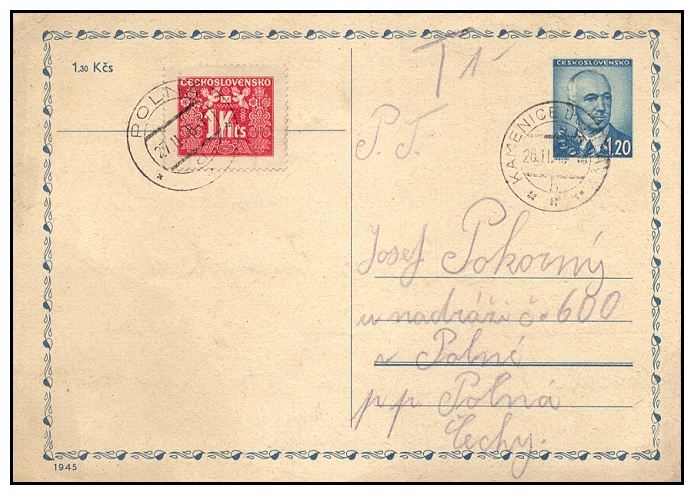 T 1-
ČESKOSLOVENSKO
1.30 Kčs
ČESKOSLOVENSKO
1 Kčs
POLNÁ
27.II.
1.20
KAMENICE
26.II.
b
P. T.
Josef Pokorný
u nadráží č. 600
v Polné
p p Polná
Čechy.
1945